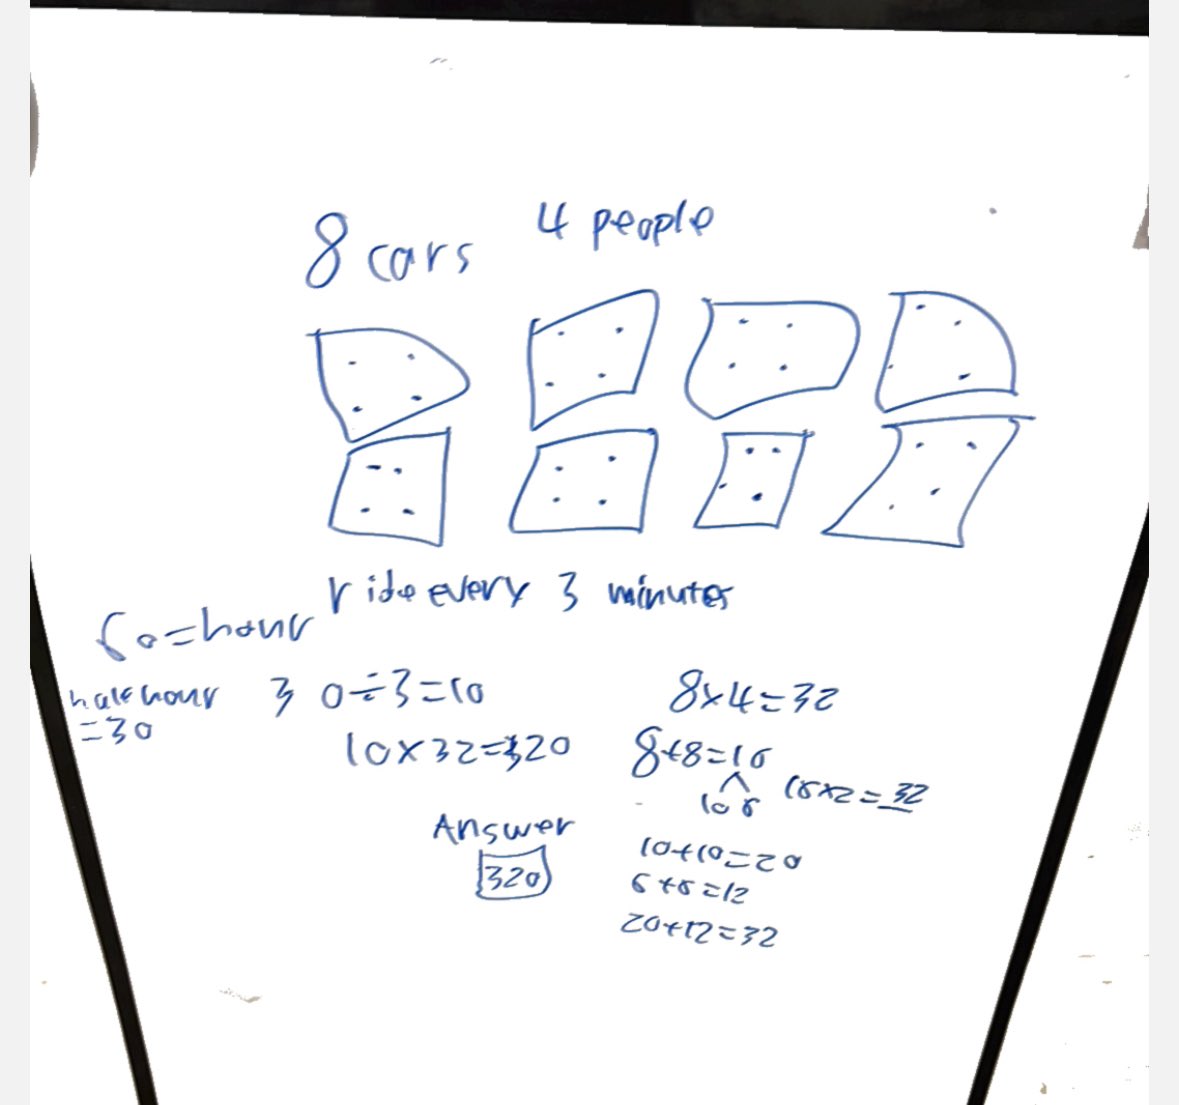 8 cars
4 people
ride every 3 minutes
60=hour
half hour
=30
30÷3=10
10×32=320
Answer
320
8×4=32
8+8=16
10 6
16×2=32
10+10=20
6+6=12
20+12=32